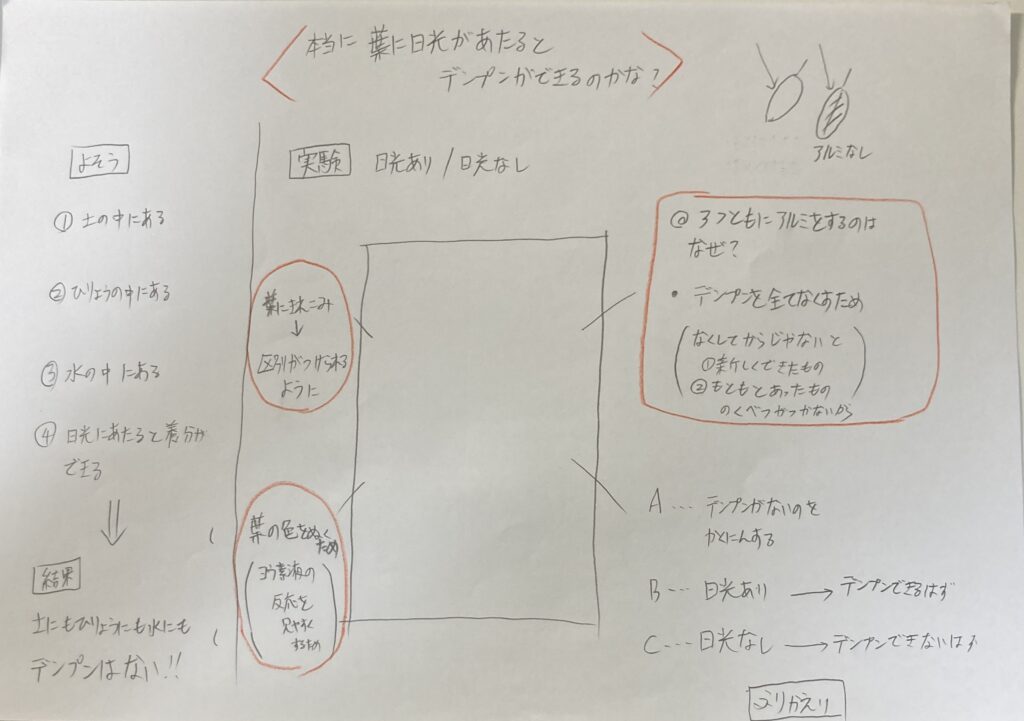 本当に 葉に日光があたると
デンプンができるのかな?
アルミなし
よそう
① 土の中にある
② ひりょうの中にある
③ 水の中にある
④ 日光にあたると養分が
できる
結果
土にもひりょうにも水にも
デンプンはない!!
実験 日光あり / 日光なし
葉に切れこみ
↓
区別がつけられる
ように
葉の色をぬくため
(ヨウ素液の
反応を
見やすく
するため)
@ 3つともにアルミをするのは
なぜ?
• デンプンを全てなくすため
(なくしてからじゃないと
①新しくできたもの
②もともとあったもの
のくべつがつかないから)
A … デンプンがないのを
かくにんする
B … 日光あり → デンプンできるはず
C … 日光なし → デンプンできないはず
ふりかえり